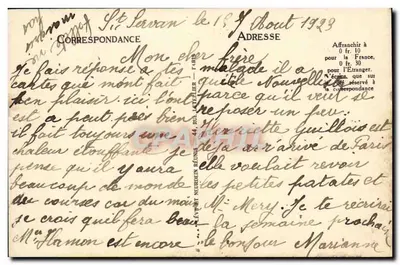 St Servan le 15 Aout 1923
CORRESPONDANCE
ADRESSE
Affranchir à
0 fr. 10
pour la France,
0 fr. 30
pour l'Etranger.
que sur
réservé à
correspondance
Mon cher frère
Je fais réponse a tes
cartes que mont fait
bien plaisir ici l'oncl
est a peut près bien
il fait toujours une
chaleur étouffant je
pense qu'il y aura
beaucoup de monde
du courses car du moins
je crois qu'il fera beau
Mme Hamon est encore
malade il a
quitté Nouvelliste
parce qu'il veut se
reposer un peu.
Guillois est
déja arrivée de Paris
elle voulait revoir
les petites patates et
Mr Mery. Je te récrirai
la semaine prochai
le bonsoir Marianne